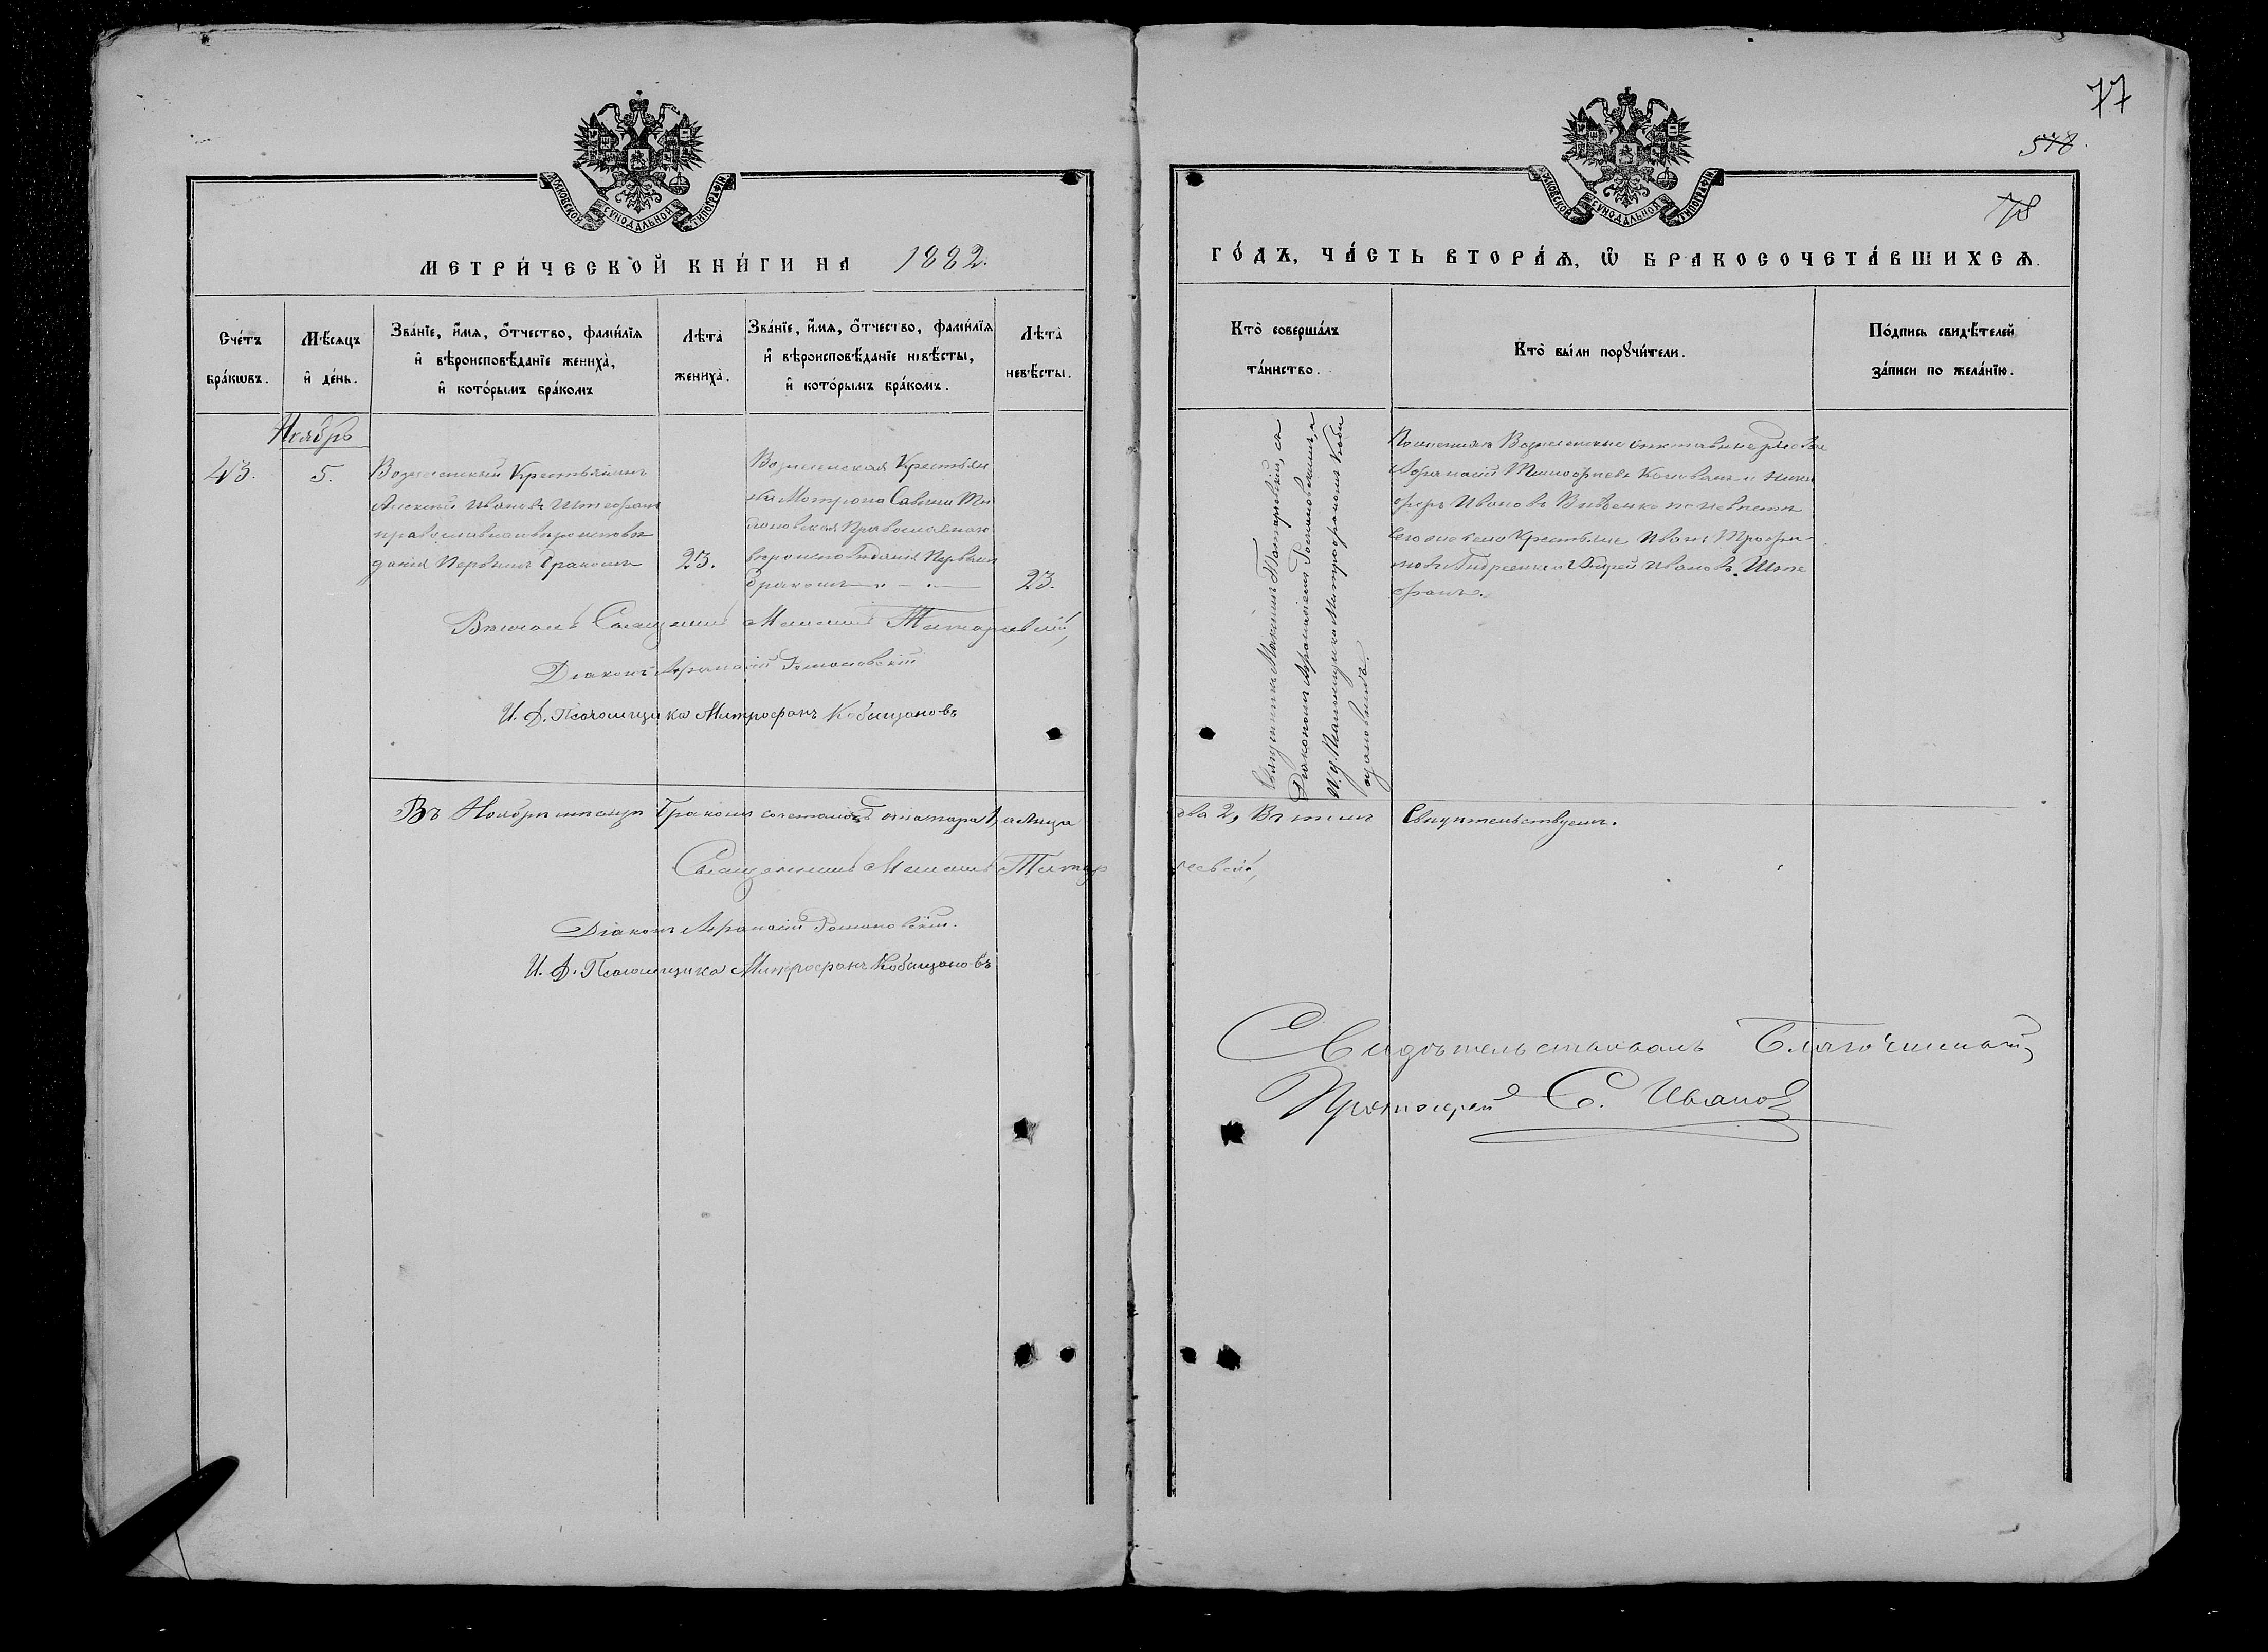 77
518.
78
МОСКОВСКОЙ СѴНОДАЛЬНОЙ ТИПОГРАФІИ
МОСКОВСКОЙ СѴНОДАЛЬНОЙ ТИПОГРАФІИ
МЕТРИ́ЧЕСКОЙ КНИ́ГИ НА 1882.
ГО́ДЪ, ЧА́СТЬ ВТОРА́Ѧ, Ѽ БРАКОСОЧЕТА́ВШИХСѦ.
Сче́тъ
бра́кѡвъ.
Мѣ́сѧцъ
и҆ де́нь.
Зва́нїе, и҆́мѧ, ѻ҆́тчество, фами́лїѧ
и҆ вѣроисповѣ́данїе жениха̀,
и҆ кото́рымъ бра́комъ
Лѣта̀
жениха̀.
Зва́нїе, и҆́мѧ, ѻ҆́тчество, фами́лїѧ
и҆ вѣроисповѣ́данїе невѣ́сты,
и҆ кото́рымъ бра́комъ.
Лѣта̀
невѣ́сты.
Кто̀ соверша́лъ
та́инство.
Кто̀ бы́ли порꙋчи́тели.
По́дпись свидѣ́телей
за́писи по жела́нїю.
Ноябрь
43.
5.
Вознесенскій Крестьянинъ
Алексѣй Ивановъ Штефанъ
православнаго вѣроисповѣ
данія Первымъ бракомъ
23.
Вознесенская Крестьян
ка Мотрона Савина
Православнаго
вѣроисповѣданія Первымъ
бракомъ
23.
Священникъ Максимъ Татаревскій, съ
Діакономъ Афанасіемъ Романовскимъ, и
И. д. Псаломщика Митрофаномъ Коби
щановымъ.
По женихѣ Вознесенскіе отставные рядовые
Афанасій Тимофѣевъ и Ники
форъ Ивановъ по невѣстѣ
Крестьяне Иванъ Трофи-
мовъ Андреенко и Андрей Ивановъ Ште
фанъ.
Вѣнчалъ Священникъ Максимъ Татаревскій,
Діаконъ Афанасій Романовскій
И. Д. Псаломщика Митрофанъ Кобищановъ
Въ Ноябрѣ мѣсяцѣ бракомъ сочеталось одна пара 1, а лица
оба 2, Въ чемъ Свидѣтельствуемъ.
Священникъ Максимъ Татар
невскій,
Діаконъ Афанасій Романовскій.
И. Д. Псаломщика Митрофанъ Кобищановъ
Свидѣтельствовалъ Благочинный,
Протоіерей С. Ивановъ